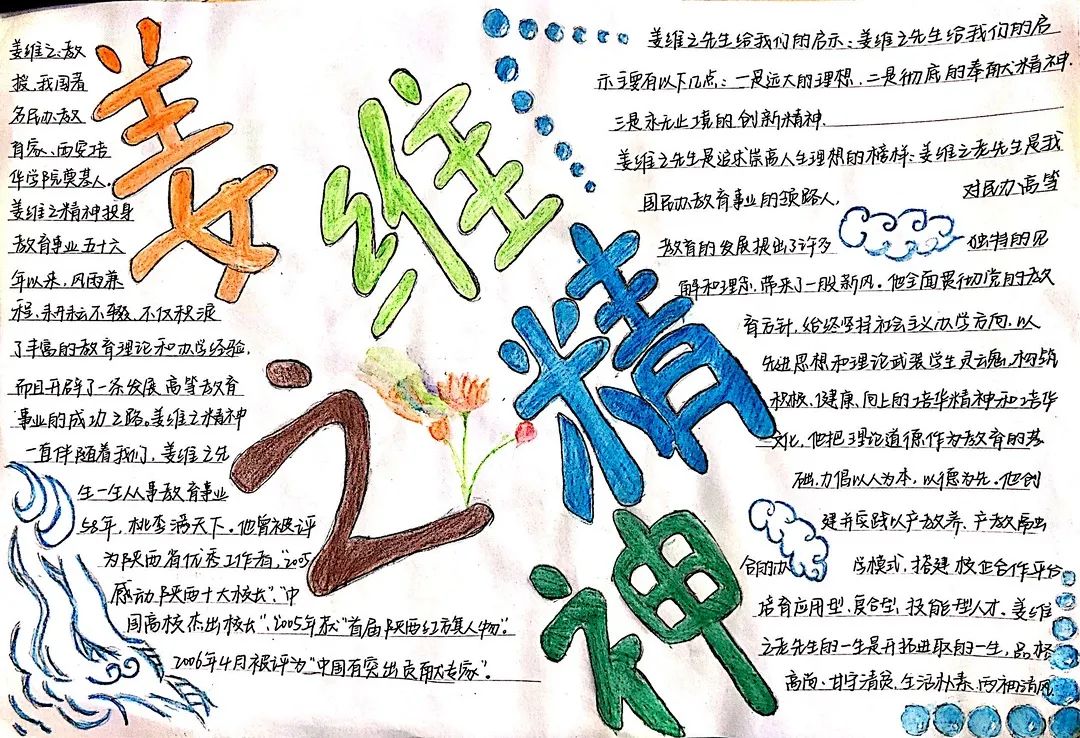 姜维之精神
姜维之:教
授,我国著
名民办教
育家、西安培
华学院奠基人。
姜维之精神投身
教育事业五十六
年以来,风雨兼
程,耕耘不辍,不仅积淀
了丰富的教育理论和办学经验,
而且开辟了一条发展高等教育
事业的成功之路。姜维之精神
一直伴随着我们,姜维之先
生一生从事教育事业
58年,桃李满天下。他曾被评
为陕西省优秀工作者,"2005
感动陕西十大校长","中
国高校杰出校长",2005年获"首届陕西红方旗人物"。
2006年4月被评为"中国有突出贡献专家"。
姜维之先生给我们的启示:姜维之先生给我们的启
示主要有以下几点:一是远大的理想,二是彻底的奉献精神.
三是永无止境的创新精神.
姜维之先生是追求崇高人生理想的榜样:姜维之老先生是我
国民办教育事业的领路人,
对民办高等
教育的发展提出了许多
独特的见
解和理念,带来了一股新风。他全面贯彻党的教
育方针,始终坚持社会主义办学方向,以
先进思想和理论武装学生灵魂,构筑
积极、健康、向上的培华精神和培华
文化,他把理论道德作为教育的基
础,力倡以人为本,以德为先。他创
建并实践以产教养、产教
合的办
学模式,搭建校企合作平台
培育应用型、复合型、技能型人才。姜维
之老先生的一生是开拓进取的一生,品格
高尚、甘守清贫、生活朴素、两袖清风